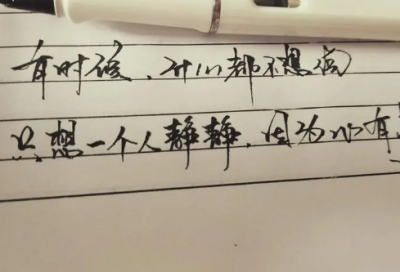 有时候，什么都不想
只想一个人静静，因为心有